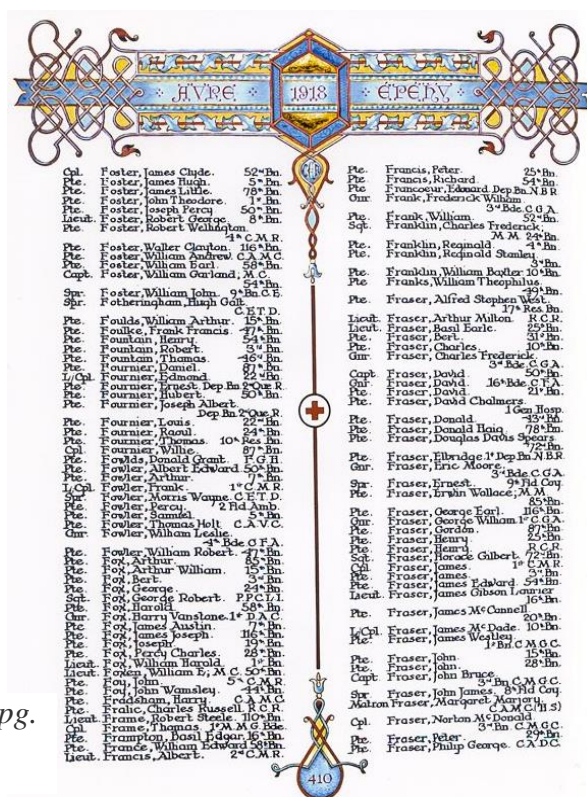 AVRE 1918 EPEHY
Cpl. Foster, James Clyde. 52nd Bn.
Pte. Foster, James Hugh. 5th Bn.
Pte. Foster, James Little. 78th Bn.
Pte. Foster, John Theodore. 1st Bn.
Pte. Foster, Joseph Percy 50th Bn.
Lieut. Foster, Robert George. 8th Bn.
Pte. Foster, Robert Wellington.
4th C.M.R.
Pte. Foster, Walter Clayton. 116th Bn.
Pte. Foster, William Andrew. C.A.M.C.
Pte. Foster, William Earl. 58th Bn.
Capt. Foster, William Garland; M.C.
54th Bn.
Spr. Foster, William John. 9th Bn. C.E.
Spr. Fotheringham, Hugh Galt.
C.E.T.D.
Pte. Foulds, William Arthur. 15th Bn.
Pte. Foulke, Frank Francis. 47th Bn.
Pte. Fountain, Henry. 54th Bn.
Pte. Fountain, Robert. 3rd Bn.
Pte. Fountain, Thomas. 46th Bn.
Pte. Fournier, Daniel. 87th Bn.
L/Cpl. Fournier, Edmond. 22nd Bn.
Pte. Fournier, Ernest. Dep. Bn. 2nd Que. R.
Pte. Fournier, Hubert. 50th Bn.
Pte. Fournier, Joseph Albert.
Dep. Bn. 2nd Que. R.
Pte. Fournier, Louis. 22nd Bn.
Pte. Fournier, Raoul. 24th Bn.
Pte. Fournier, Thomas. 10th Res. Bn.
Cpl. Fournier, Willie. 87th Bn.
Pte. Fowlds, Donald Grant. F.G.H.
Pte. Fowler, Albert Edward. 50th Bn.
Pte. Fowler, Arthur. 7th Bn.
L/Cpl. Fowler, Frank. 1st C.M.R.
Spr. Fowler, Morris Wayne. C.E.T.D.
Pte. Fowler, Percy. 2 Fld. Amb.
Pte. Fowler, Samuel. 5th Bn.
Pte. Fowler, Thomas Holt. C.A.V.C.
Gnr. Fowler, William Leslie.
4th Bde. C.F.A.
Pte. Fowler, William Robert. 47th Bn.
Pte. Fox, Arthur. 85th Bn.
Pte. Fox, Arthur William. 15th Bn.
Pte. Fox, Bert. 3rd Bn.
Pte. Fox, George. 24th Bn.
Sgt. Fox, George Robert. P.P.C.L.I.
Pte. Fox, Harold. 58th Bn.
Gnr. Fox, Harry Vanstane. 1st D.A.C.
Pte. Fox, James Austin. 7th Bn.
Pte. Fox, James Joseph. 116th Bn.
Pte. Fox, Joseph. 19th Bn.
Pte. Fox, Percy Charles. 28th Bn.
Lieut. Fox, William Harold. 1st Bn.
Lieut. Foxen, William E; M.C. 50th Bn.
Pte. Foy, John. 5th C.M.R.
Pte. Foy, John Wamsley. 44th Bn.
Pte. Fradsham, Harry. C.A.M.C.
Pte. Fralic, Charles Russell. R.C.R.
Lieut. Frame, Robert Steele. 110th Bn.
Cpl. Frame, Thomas. 1st M.M.G. Bde.
Pte. Frampton, Basil Edgar. 16th Bn.
Pte. France, William Edward. 58th Bn.
Lieut. Francis, Albert. 2nd C.M.R.
Pte. Francis, Peter. 25th Bn.
Pte. Francis, Richard. 54th Bn.
Pte. Francoeur, Edouard. Dep. Bn. N.B.R.
Gnr. Frank, Frederick William.
3rd Bde. C.G.A.
Pte. Frank, William. 52nd Bn.
Sgt. Franklin, Charles Frederick;
M.M. 24th Bn.
Pte. Franklin, Reginald. 4th Bn.
Pte. Franklin, Reginald Stanley.
3rd Bn.
Pte. Franklin, William Baxter. 10th Bn.
Pte. Franks, William Theophilus.
49th Bn.
Pte. Fraser, Alfred Stephen West.
17th Res. Bn.
Lieut. Fraser, Arthur Milton. R.C.R.
Lieut. Fraser, Basil Earle. 25th Bn.
Pte. Fraser, Bert. 31st Bn.
Pte. Fraser, Charles. 10th Bn.
Gnr. Fraser, Charles Frederick.
3rd Bde. C.G.A.
Capt. Fraser, David. 50th Bn.
Gnr. Fraser, David. 16th Bde. C.F.A.
Pte. Fraser, David. 21st Bn.
Pte. Fraser, David Chalmers.
1 Gen. Hosp.
Pte. Fraser, Donald. 43rd Bn.
Pte. Fraser, Donald Haig. 78th Bn.
Pte. Fraser, Douglas Davis Spears.
72nd Bn.
Pte. Fraser, Elbridge. 1st Dep. Bn. N.B.R.
Gnr. Fraser, Eric Moore.
3rd Bde. C.G.A.
Spr. Fraser, Ernest. 9th Fld. Coy.
Pte. Fraser, Erwin Wallace; M.M.
85th Bn.
Pte. Fraser, George Earl. 116th Bn.
Gnr. Fraser, George William. 1st C.G.A.
Pte. Fraser, Gordon. 87th Bn.
Pte. Fraser, Henry. 25th Bn.
Pte. Fraser, Henry. R.C.R.
Sgt. Fraser, Horace Gilbert. 72nd Bn.
Cpl. Fraser, James. 1st C.M.R.
Pte. Fraser, James. 3rd Bn.
Pte. Fraser, James Edward. 54th Bn.
Lieut. Fraser, James Gibson Laurier
16th Bn.
Pte. Fraser, James McConnell
20th Bn.
L/Cpl. Fraser, James McDade. 10th Bn.
Pte. Fraser, James Westley.
1st Bn. C.M.G.C.
Pte. Fraser, John. 15th Bn.
Pte. Fraser, John. 28th Bn.
Capt. Fraser, John Bruce.
3rd Bn. C.M.G.C.
Spr. Fraser, John James. 8th Fld. Coy.
Matron Fraser, Margaret Marjory.
C.A.M.C. (H.S)
Cpl. Fraser, Norton McDonald
3rd Bn. C.M.G.C.
Pte. Fraser, Peter. 29th Bn.
Pte. Fraser, Philip George. C.A.D.C.
410
pg.